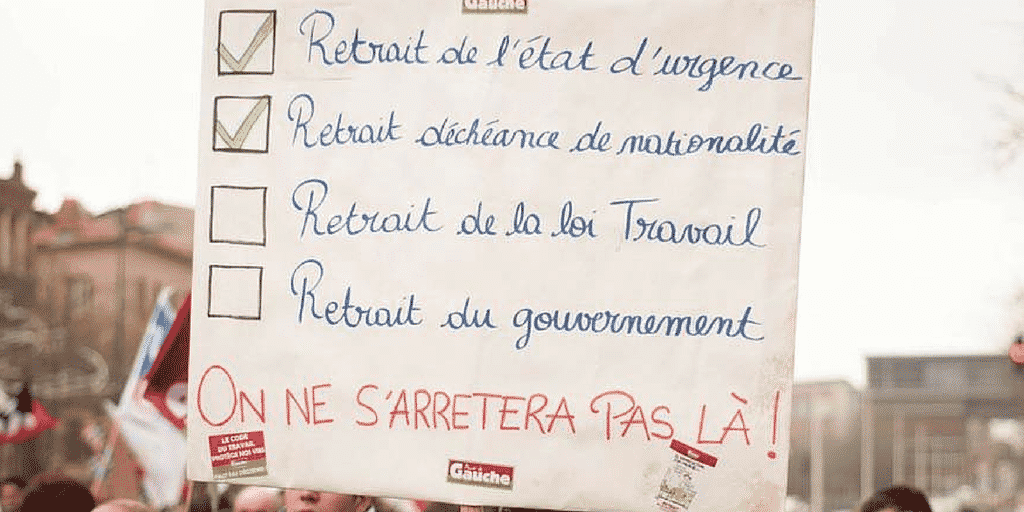 Gauche
Retrait de l'état d'urgence
Retrait déchéance de nationalité
Retrait de la loi Travail
Retrait du gouvernement
ON NE S'ARRETERA PAS LÀ !
LE CODE
DU TRAVAIL
PROTÈGE NOS VIES
Gauche